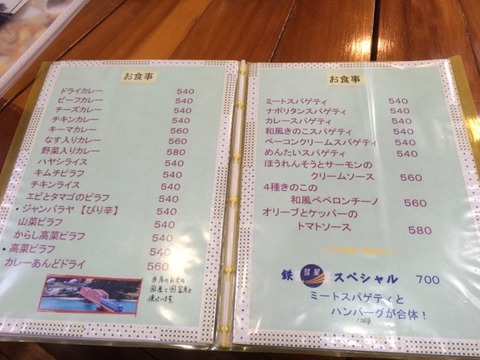 お食事
ドライカレー 540
ビーフカレー 540
チーズカレー 540
チキンカレー 540
キーマカレー 560
なす入りカレー 560
野菜入りカレー 580
ハヤシライス 540
キムチピラフ 540
チキンライス 540
エビとタマゴのピラフ 540
・ジャンバラヤ【ぴり辛】 540
山菜ピラフ 540
からし高菜ピラフ 540
・高菜ピラフ 540
カレーあんどドライ 560
お食事
ミートスパゲティ 540
ナポリタンスパゲティ 540
カレースパゲティ 540
和風きのこスパゲティ 540
ベーコンクリームスパゲティ 540
めんたいスパゲティ 540
ほうれんそうとサーモンの
クリームソース 560
4種きのこの
和風ペペロンチーノ 560
オリーブとケッパーの
トマトソース 580
鉄 彗星 スペシャル 700
ミートスパゲティと
ハンバーグが合体!